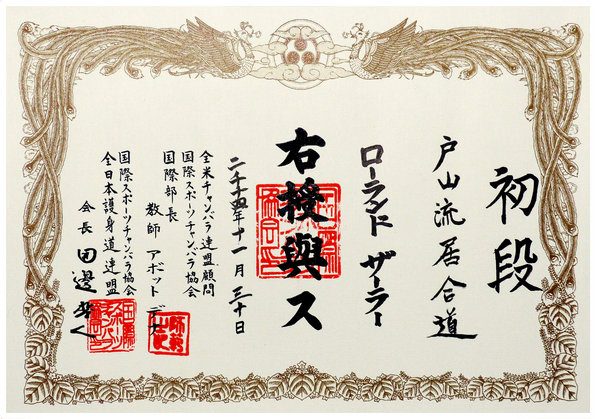 初段
戸山流居合道
ローランド ザーラー
右授與ス
二千十四年十一月三十日
全米チャンバラ連盟顧問
国際スポーツチャンバラ協会
国際部長
教師 アボット デナ
国際スポーツチャンバラ協会
全日本護身道連盟
会長 田邊